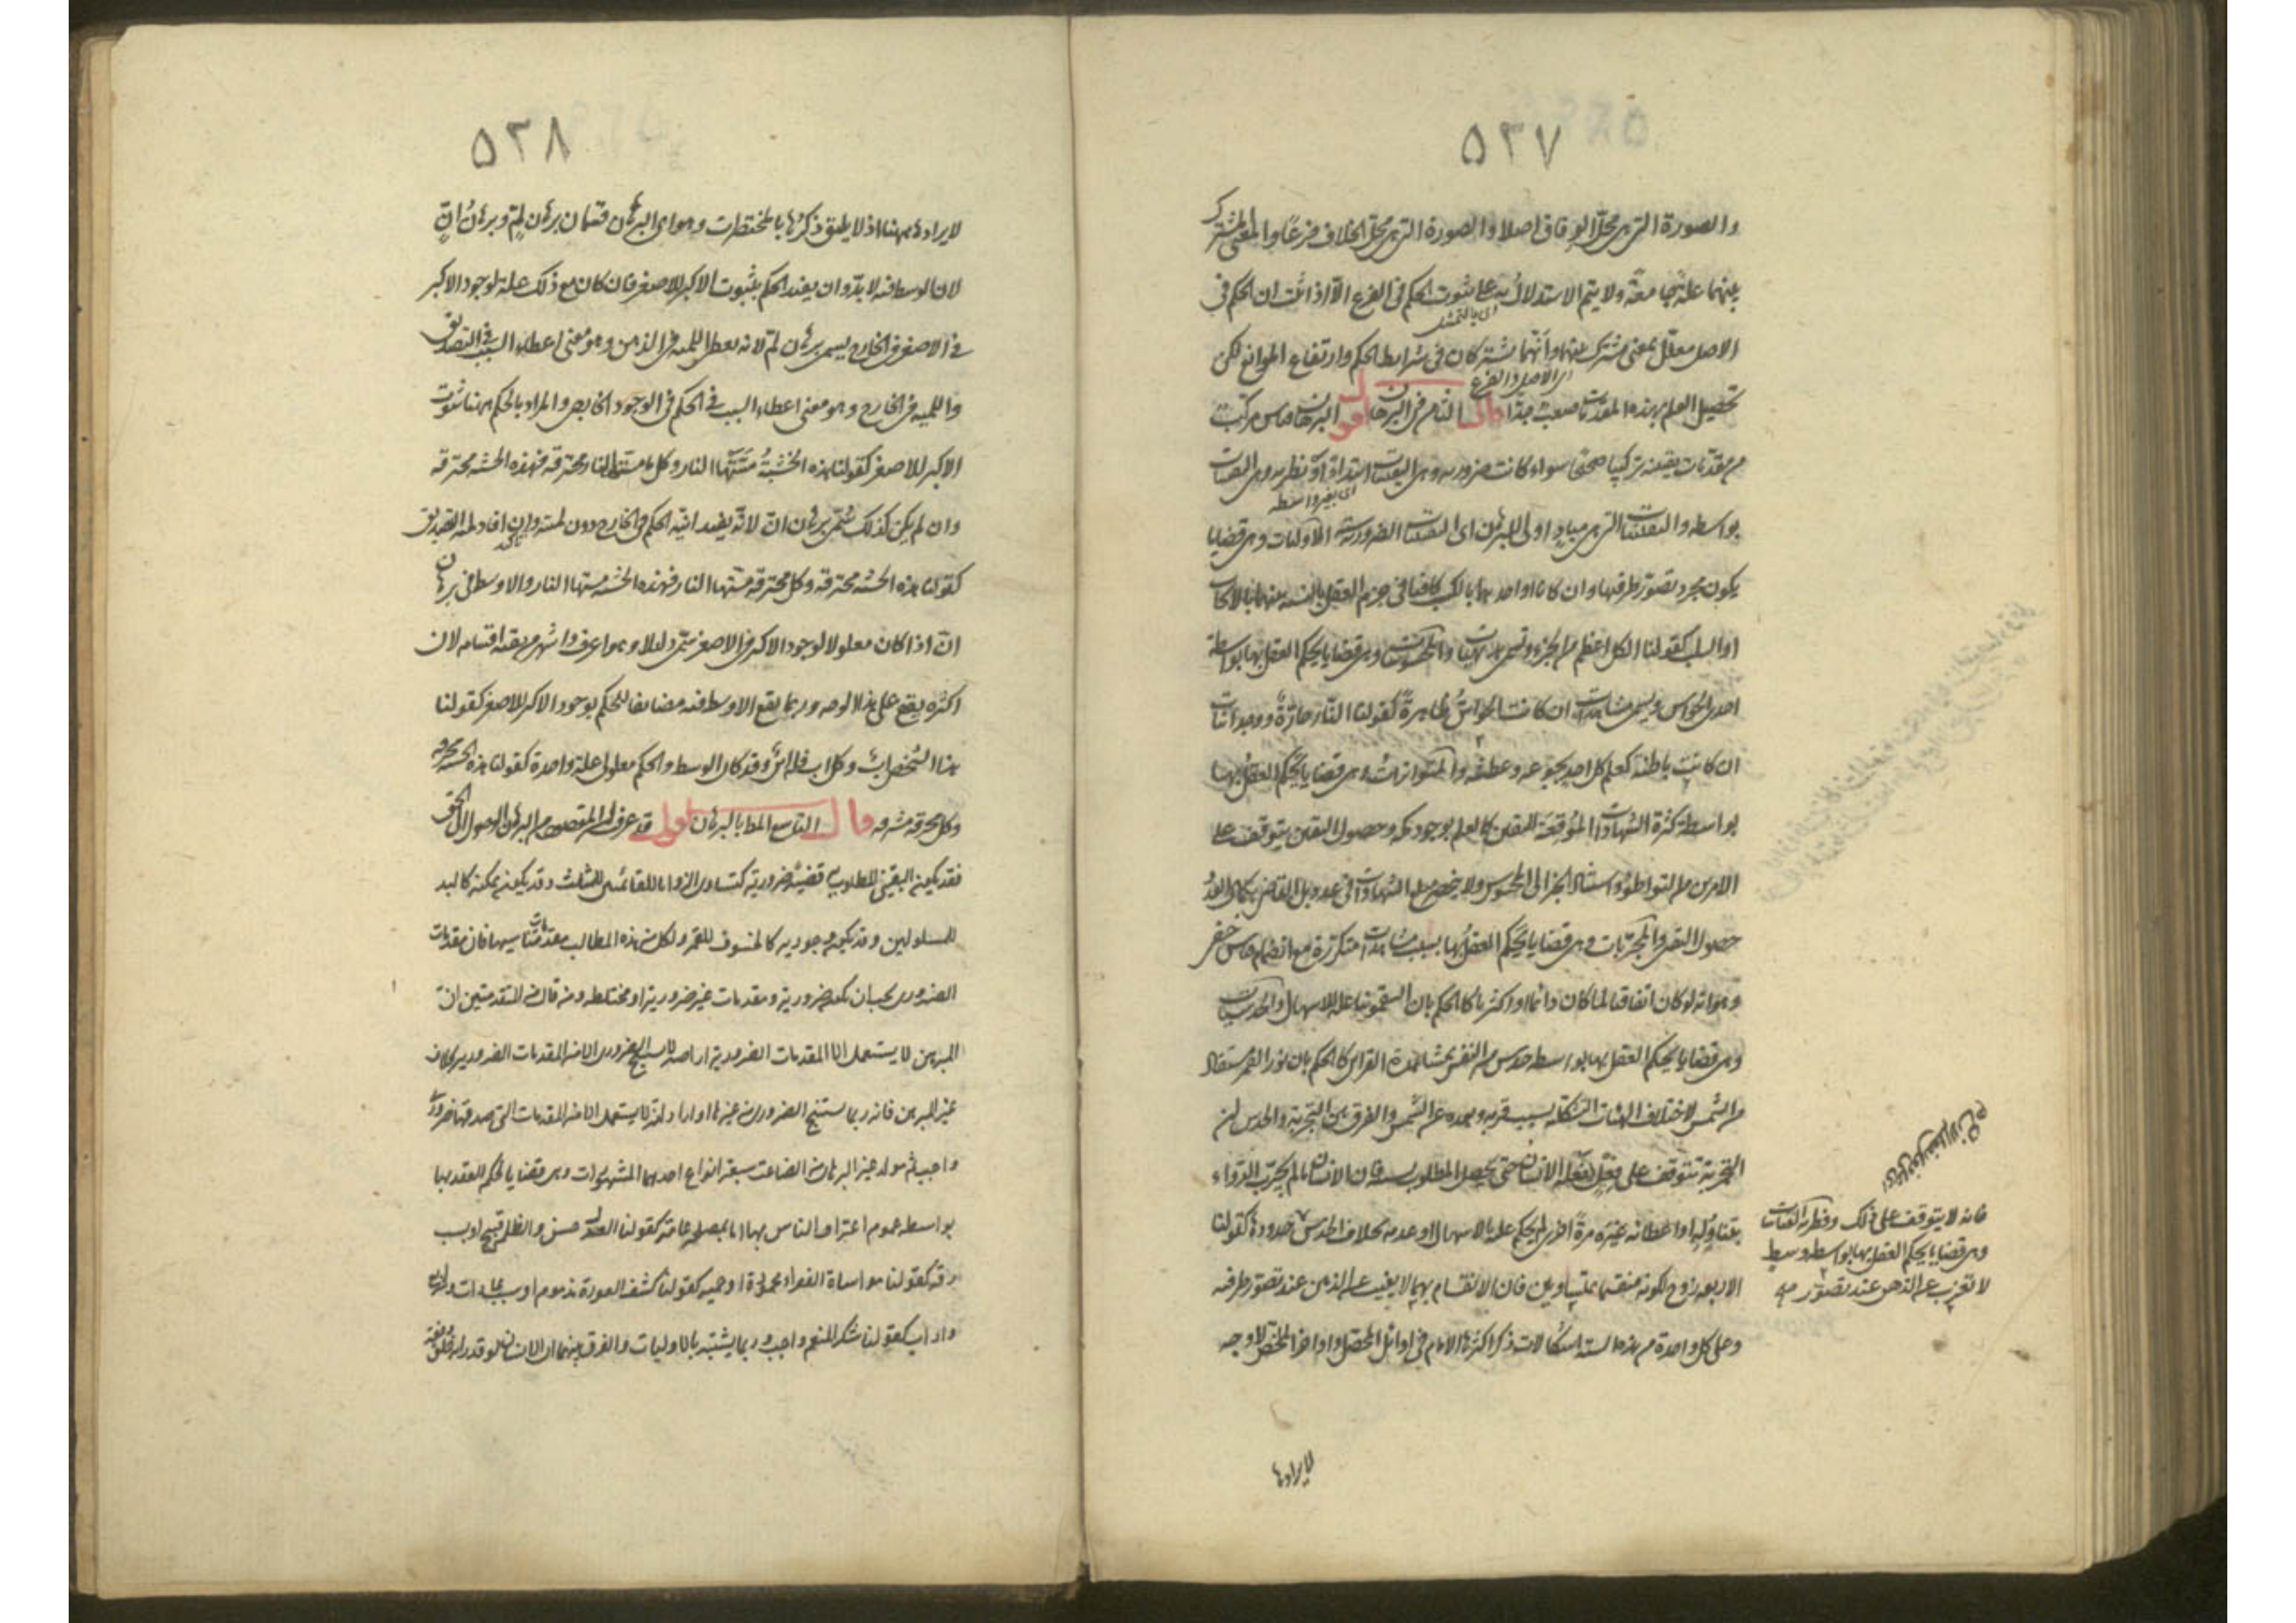 ٥٣٧
والصورة التي هي محل الوفاق اصلا والصورة التي هي محل الخلاف فرعًا والمعنى المشترك
بينهما علة جامعة ولا يتم الاستدلال به على ثبوت الحكم في الفرع الا اذا ثبت ان الحكم في
اي بالتمثيل
الاصل معلل بمعنى مشترك بينهما وانهما مشتركان في شرايط الحكم وارتفاع الموانع لكن
اي الاصل والفرع
تحصيل العلم بهذه المقدمات صعب جدا قال الثامن في البرهان اقول البرهان قياس مركب
من مقدمات يقينية تركيبا صحيحا سواء كانت ضرورية وهي اليقينيات ابتداء او نظرية وهي اليقينيات
اي بغير واسطة
بواسطة واليقينيات التي هي مبادٍ اولى للبرهان اي اليقينيات الضرورية الاوليات وهي قضايا
يكون مجرد تصور طرفيها وان كانا او احدهما بالكسب كافيا في جزم العقل بالنسبة بينهما بالايجاب
او السلب كقولنا الكل اعظم من الجزء وتسمى بديهيات والمحسوسات وهي قضايا يحكم العقل بها بواسطة
احدى الحواس ويسمى مشاهدات ان كانت الحواسُ ظاهرةً كقولنا النار حارةً ووجدانيات
ان كانت باطنة كعلم كل احد بجوعه وعطشه والمتواترات وهي قضايا يحكم العقل بها
بواسطة كثرة الشهادات الموقعة لليقين كالعلم بوجود مكة وحصول اليقين يتوقف على
الامن من التواطؤ واستناد الخبر الى المحسوس ولا ينحصر مبلغ الشهادات في عدد بل القاضي بكمال العدد
حصول اليقين والمجربات وهي قضايا يحكم العقل بها بسبب مشاهدات متكررة مع انضمام قياس خفي
وهو انه لو كان اتفاقيا لما كان دائما او اكثريا كالحكم بان السقمونيا علة للاسهال والحدسيات
وهي قضايا يحكم العقل بها بواسطة حدس من النفس بمشاهدة القراين كالحكم بان نور القمر مستفاد
من الشمس لاختلاف الهيئات الشكلية بسبب قربه وبعده عن الشمس والفرق بين التجربة والحدس ان
التجربة تتوقف على فعل يفعله الانسان حتى يحصل المطلوب بسببه فان الانسان ما لم يجرب الدواء
بتناوله او اعطائه غيره مرة اخرى لم يحكم عليه بالاسهال او عدمه بخلاف الحدس حدودها كقولنا
الاربعة زوج لكونه منقسما بمتساويين فان الانقسام بهما لا يغيب عن الذهن عند تصور طرفيه
وعلى كل واحدة من هذه الستة اشكالات ذكر اكثرها الامام في اوائل المحصل واواخر الملخص لا وجه
فانه لا يتوقف على ذلك وفطرية القياسات
وهي قضايا يحكم العقل بها بواسطة وسطٍ
لا تعزب عن الذهن عند تصور
لايرادها
٥٣٨
لايرادها ههنا اذ لا يليق ذكرها بالمختصرات وهو اي البرهان قسمان برهان لِمّ وبرهانُ انّ
لان الوسط فيه لا بد وان يفيد الحكم بثبوت الاكبر للاصغر فان كان مع ذلك علة لوجود الاكبر
في الاصغر في الخارج يسمى برهان لم لانه يعطى اللمية في الذهن وهو معنى اعطاء السبب في التصديق
واللمية في الخارج وهو معنى اعطاء السبب في الحكم في الوجود الخارجي والمراد بالحكم ههنا ثبوت
الاكبر للاصغر كقولنا هذه الخشبةُ مستها النار وكل ما مسته النار محترقة فهذه الخشبة محترقة
وان لم يكن كذلك سمي برهان انّ لانه يفيد انية الحكم في الخارج دون لميته وان افاد لمية التصديق
كقولنا هذه الخشبة محترقة وكل محترقة مستها النار فهذه الخشبة مستها النار والاوسط في برهان
انّ اذا كان معلولا لوجود الاكبر في الاصغر سمي دليلا وهو اعرف واشهر من بقية اقسامه لان
اكثره يقع على هذا الوجه وربما يقع الاوسط فيه مضايفا للحكم بوجود الاكبر للاصغر كقولنا
هذا الشخص اب وكل اب فله ابن وقد كان الوسط والحكم معلولي علة واحدة كقولنا هذه الخشبة محرقة
وكل محرقة مشرقة قال التاسع المطا بالبرهان اقول قد عرف ان المقصود من البرهان الوصول الى الحق
فقد يكون اليقيني المطلوب قضية ضرورية كتساوي الزوايا للقائمتين للمثلث وقد يكون ممكنة كالبرء
للمسلولين وقد يكون وجودية كالخسوف للقمر ولكل من هذه المطالب مقدمات تناسبها فان مقدمات
الضروري يجب ان تكون ضرورية ومقدمات غير ضرورية او مختلطة ومن قال من المتقدمين ان
المبرهن لا يستعمل الا المقدمات الضرورية اراد به انه لا يستنتج الضروري الا من المقدمات الضرورية بخلاف
غير المبرهن فانه ربما يستنتج الضروري من غيرها او اراد انه لا يستعمل الا من المقدمات التي صدقها ضروري
واجيب ثم مواد غير البرهان من الصناعات سبعة انواع احدها المشهورات وهي قضايا يحكم العقل بها
بواسطة عموم اعتراف الناس بها اما بمصلحة عامة كقولنا العدل حسن والظلم قبيح او بسبب
رقة كقولنا مواساة الفقراء محمودة او حمية كقولنا كشف العورة مذموم او بسبب عادات
واداب كقولنا شكر المنعم واجب وربما يشتبه بالاوليات والفرق بينهما ان الانسان لو قدر انه خلق دفعة